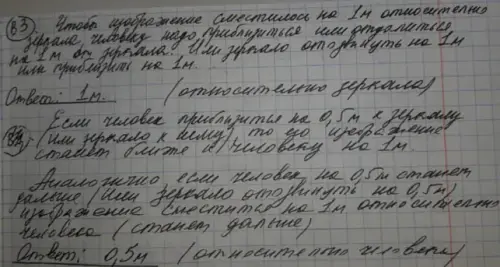 83 Чтобы изображение сместилось на 1м относительно
зеркала, человеку надо приблизиться или отдалиться
на 1м от зеркала. Или зеркало отодвинуть на 1м
или приблизить на 1м.
Ответ: 1м. (относительно зеркала)
Если человек приблизится на 0,5м к зеркалу
(или зеркало к нему), то его изображение
станет ближе к человеку на 1м.
Аналогично если человек на 0,5м станет
дальше (или зеркало отодвинуть на 0,5м)
изображение сместится на 1м относительно
человека (станет дальше)
Ответ: 0,5м (относительно человека)